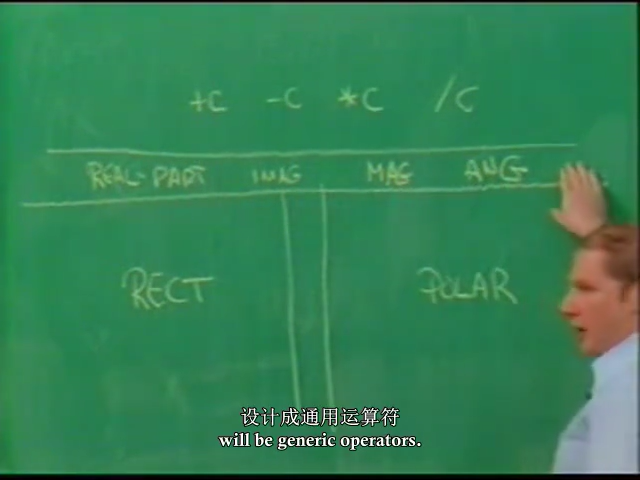 +C -C *C /C
REAL-PART IMAG MAG ANG
RECT POLAR
设计成通用运算符
will be generic operators.